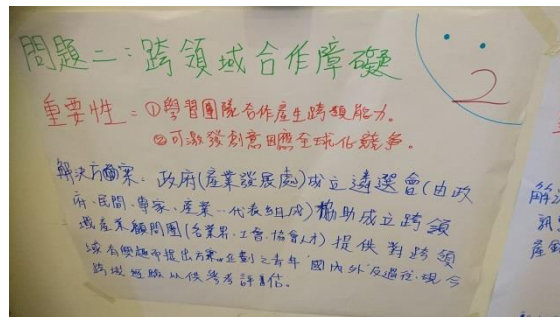 問題二：跨領域合作障礙
2
重要性：①學習團隊合作產生跨領能力.
②可激發創意因應全球化競爭.
解決方案：政府(產業發展處)成立遴選會(由政
府、民間、專家、產業…代表組成)協助成立跨領
域產業顧問團(各業界、工會、協會人才)提供對跨領
域有興趣而提出方案、企劃之青年國內外及過往、現今
跨域經驗以供參考評估.
解決
訊
產